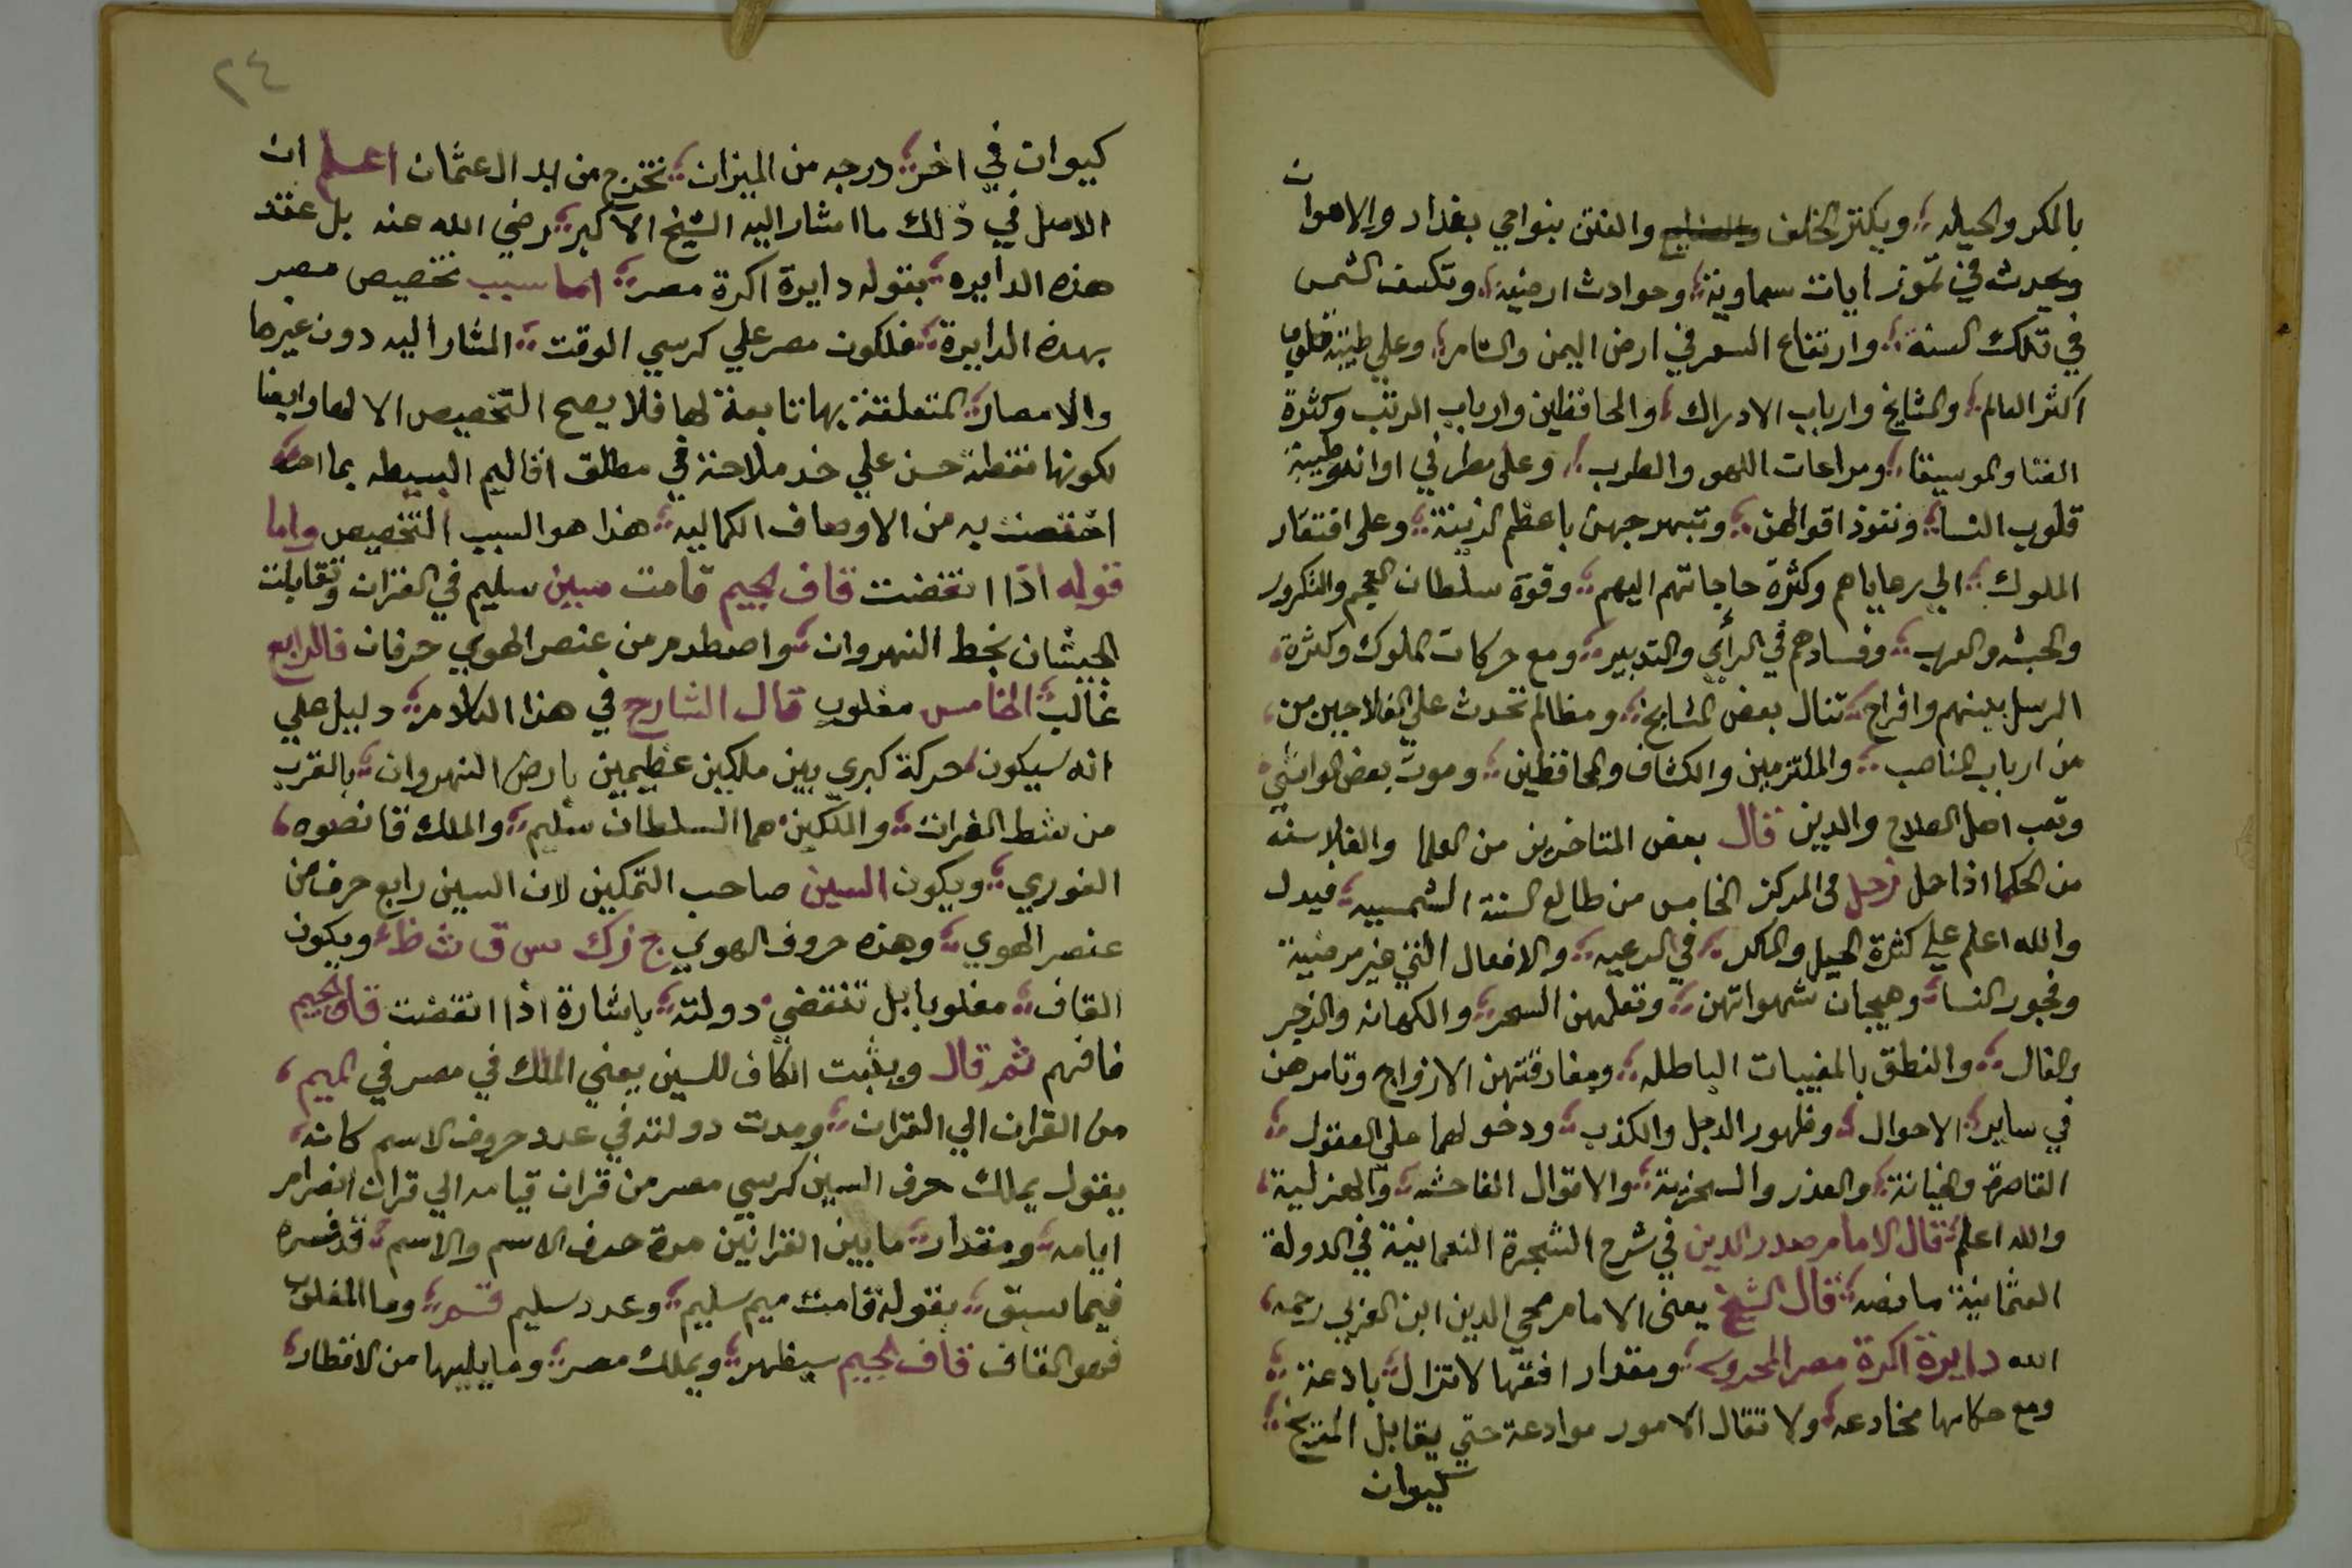 بالمكر والحيله ويكثر الخلف والفتن بنواحي بغداد والاهوان
ويحدث في تموز ايات سماوية وحوادث ارضية وتكسف الشمس
في تلك السنة وارتفاع السعر في ارض اليمن والشام وعلي طيبة قلوب
اكثر العالم والمشايخ وارباب الادراك والحافظين وارباب الرتب وكثرة
الغنا والموسيقا ومراعات اللهو والطرب وعلى مطر في اوانه وطيبة
قلوب النسا ونفوذ اقوالهن وتبهرجهن باعظم الزينة وعلى افتقار
الملوك الي رعاياهم وكثرة حاجاتهم اليهم وقوة سلطان العجم والتكرور
والحبشه والعرب وفسادهم في الرأي والتدبير ومع حركات الملوك وكثرة
الرسل بينهم وافراح تنال بعض المشايخ ومظالم تحدث علي الفلاحين من
من ارباب المناصب والملتزمين والكشاف والمحافظين وموت بعض المواشي
وتعب اهل الصلاح والدين قال بعض المتاخرين من العلما والفلاسفه
من الحكما اذا حل زحل في المركز الخامس من طالع السنة الشمسيه فيدل
والله اعلم علي كثرة الحيل والمكر في الرعيه والافعال التي غير مرضية
وفجور النسا وهيجان شهواتهن وتعلمهن السحر والكهانه والزجر
والفال والنطق بالمغيبات الباطله ومفارقتهن الازواج وتامرهن
في ساير الاحوال وظهور الدجل والكذب ودخولهما علي العقول
القاصرة والخيانة والعذر والسخرية والاقوال الفاحشه والهزلية
والله اعلم قال الامام صدر الدين في شرح الشجرة النعمانية في الدولة
العثمانية ما نصه قال الشيخ يعني الامام محي الدين ابن العربي رحمه
الله دايرة اكرة مصر المحروسه ومقدار افقها لا تزال بادعة
ومع حكامها مخادعه ولا تقال الامور موادعة حتي يقابل المريخ
كيوان
٢٤
كيوان في اخر درجه من الميزان تخرج من يد ال عثمان اعلم ان
الاصل في ذلك ما اشار اليه الشيخ الاكبر رضي الله عنه بل عقد
هذه الدايره بقوله دايرة اكرة مصر اما سبب تخصيص مصر
بهذه الدايرة فلكون مصر علي كرسي الوقت المشار اليه دون غيرها
والامصار المتعلقة بها تابعة لها فلا يصح التخصيص الا لها وايضا
لكونها نقطة حسن علي خد ملاحة في مطلق اقاليم البسيطه بما
اختصت به من الاوصاف الكماليه هذا هو السبب التخصيص واما
قوله اذا انقضت قاف الجيم قامت سين سليم في القران وتقابلت
الجيشان بخط النهروان واصطدم من عنصر الهوي حرفان فالرابع
غالب الخامس مغلوب قال الشارح في هذا الكلام دليل علي
انه سيكون حركة كبري بين ملكين عظيمين بارض النهروان بالقرب
من شط الفرات والملكين هما السلطان سليم والملك قانصوه
الغوري ويكون السين صاحب التمكين لان السين رابع حرف من
عنصر الهوي وهذه حروف الهوي ج ز ك س ق ث ظ ويكون
القاف مغلوبا بل تنقضي دولته باشارة اذا انقضت قاف الجيم
فافهم ثم قال ويثبت الكاف للسين يعني الملك في مصر في الميم
من القران الي القران ومدت دولته في عدد حروف الاسم كانه
يقول يملك حرف السين كرسي مصر من قران قيامه الي قران انصرام
ايامه ومقدار ما بين القرانين مدة حرف الاسم والاسم قد فسره
فيما سبق بقوله قامت ميم سليم وعدد سليم قسم وما المغلوب
فهو القاف قاف الجيم سيظهر ويملك مصر وما يليها من الاقطار